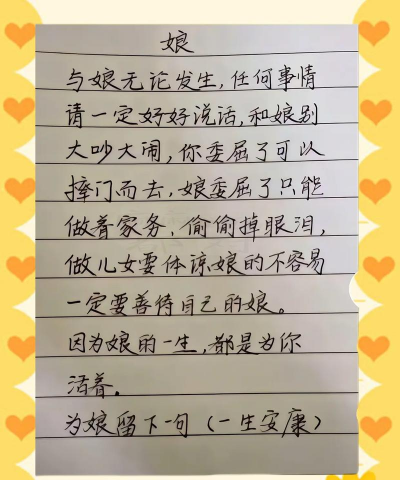 娘
与娘无论发生,任何事情
请一定好好说话,和娘别
大吵大闹,你委屈了可以
摔门而去,娘委屈了只能
做着家务,偷偷掉眼泪,
做儿女要体谅娘的不容易
一定要善待自己的娘。
因为娘的一生,都是为你
活着。
为娘留下一句(一生安康)